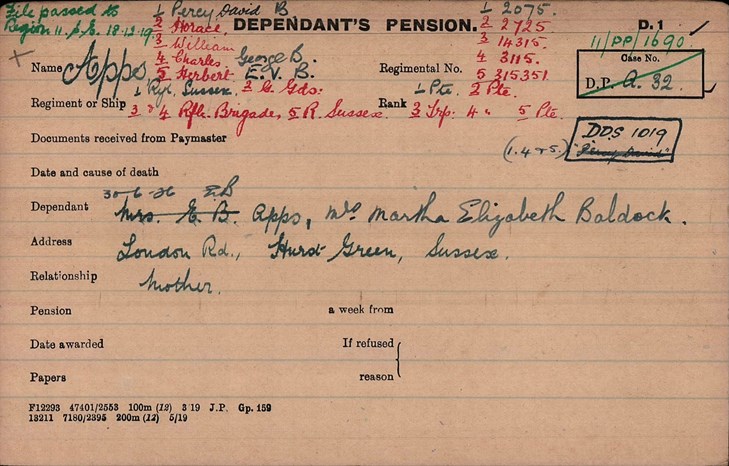 File passed to
Region 11. S.E. 18.12.19
DEPENDANT'S PENSION.
D. 1
1 Percy David B
2 Horace,
3 William
4 Charles. George B.
5 Herbert. E. V. B.
1 2075.
2 2725
3 14315.
4 3115.
5 315351
11/PP/1690
Case No.
D.P. A. 32.
Name Apps
Regimental No.
Regiment or Ship 1 Ryl. Sussex. 2 G. Gds.
3 & 4 Rfle. Brigade, 5 R. Sussex
Rank 1 Pte 2 Pte.
3 Trp. 4 " 5 Pte
DDS 1019
(1.4 & 5.) "Percy David"
Documents received from Paymaster
Date and cause of death
30-6-26 E B
Dependant Mrs. E. B. Apps, Mrs Martha Elizabeth Baldock.
Address London Rd., Hurst Green, Sussex.
Relationship Mother.
Pension a week from
Date awarded If refused
Papers reason
F12293 47401/2553 100m (12) 3 19 J.P. Gp. 159
13211 7180/2395 200m (12) 5/19